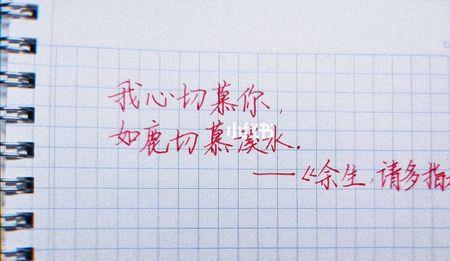 我心切慕你,
如鹿切慕溪水.
小红书
——《余生,请多指